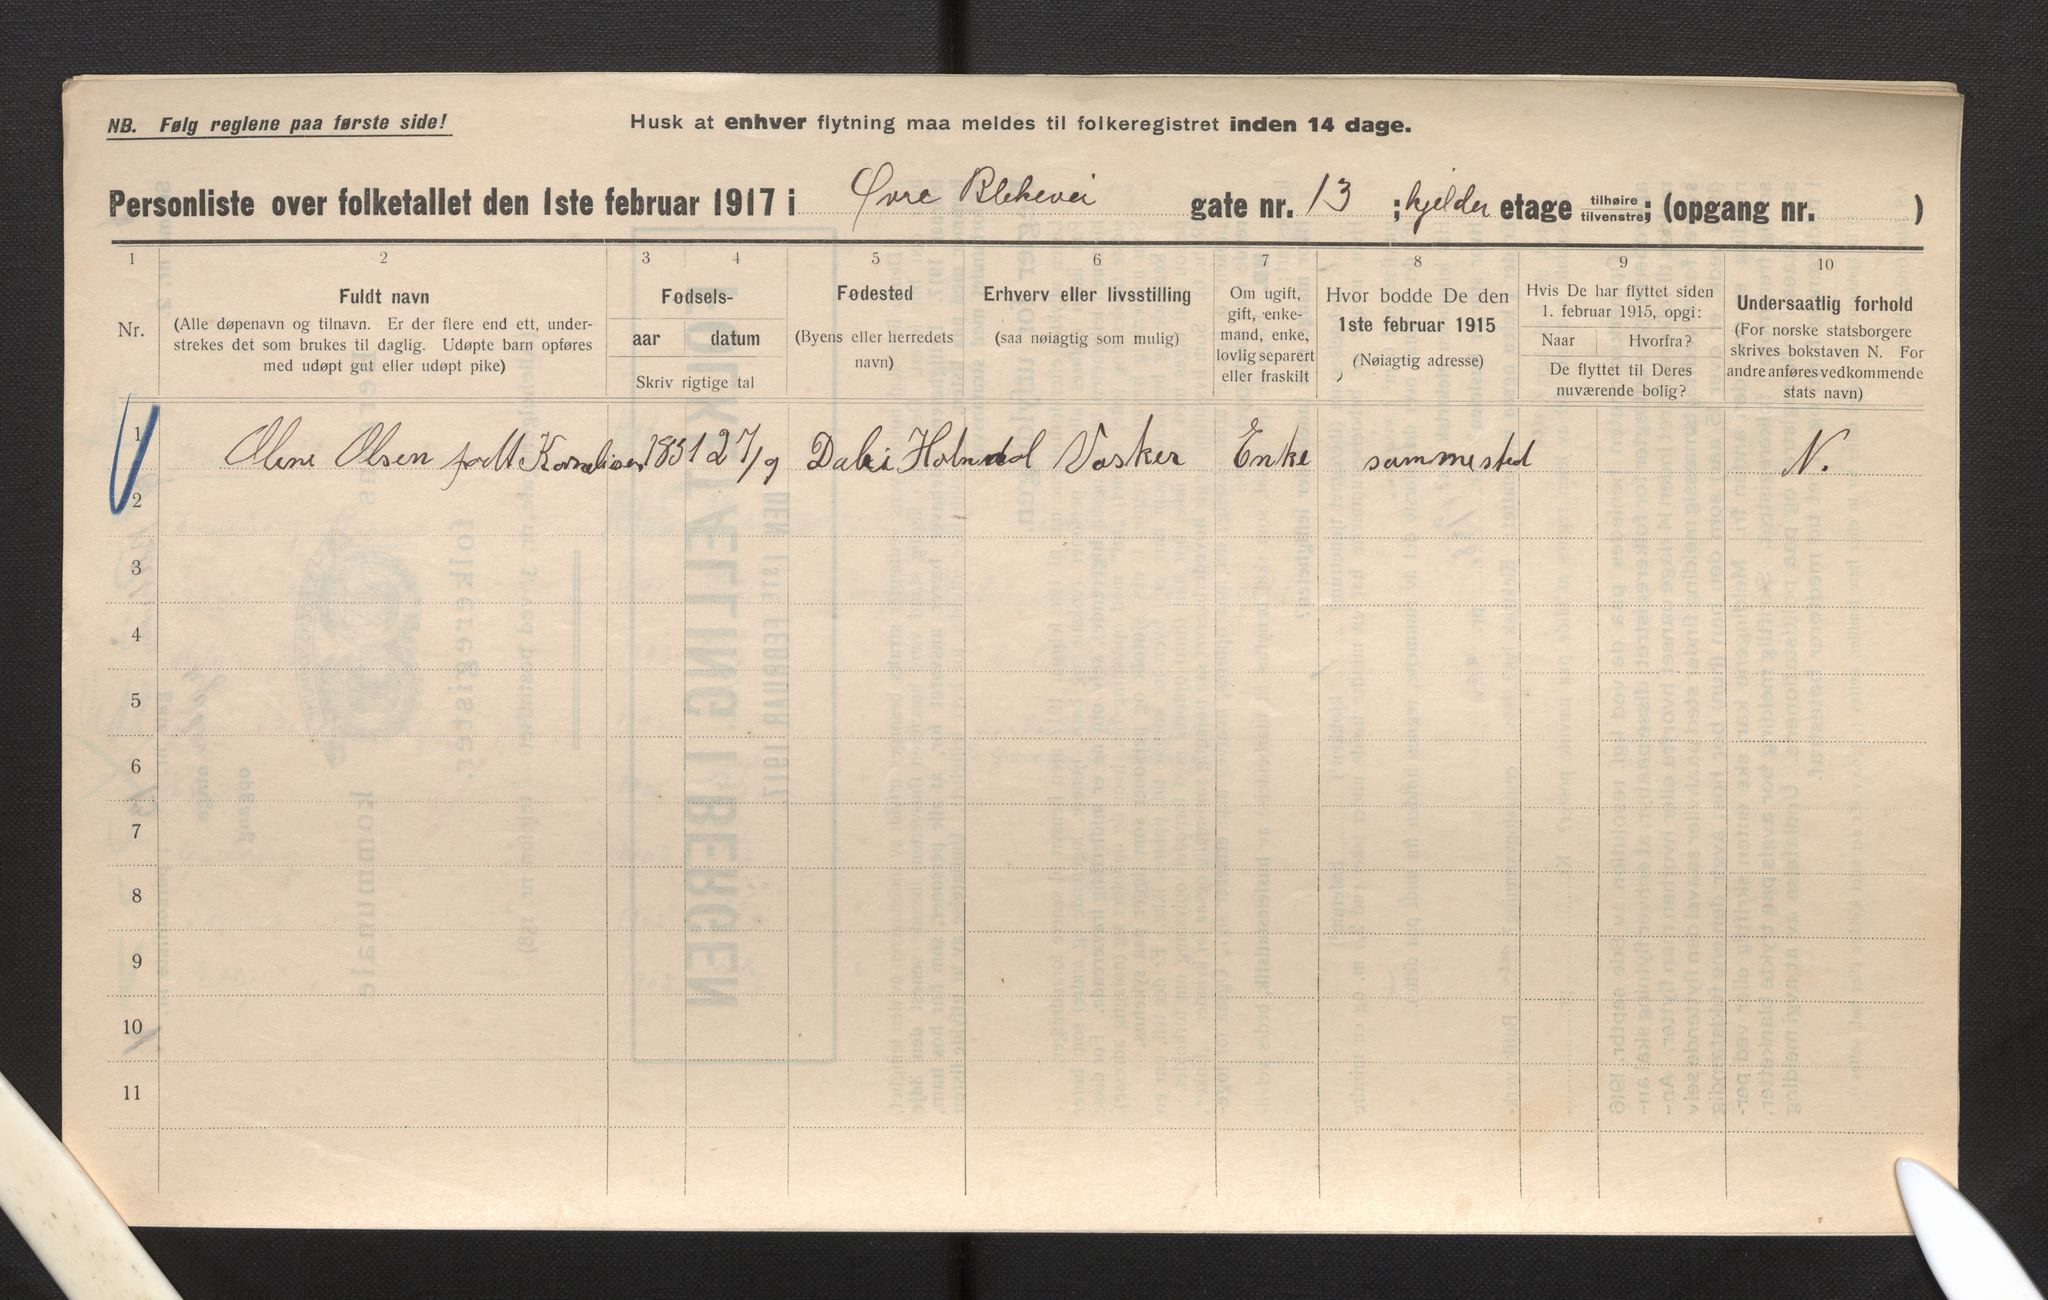 NB. Følg reglene paa første side!
Husk at enhver flytning maa meldes til folkeregistret inden 14 dage.
Personliste over folketallet den 1ste februar 1917 i Øvre Blekevei gate nr. 13 ; kjelder etage tilhøire tilvenstre; (opgang nr. )
1 2 3 4 5 6 7 8 9 10
Nr.
Fuldt navn
(Alle døpenavn og tilnavn. Er der flere end ett, under-
strekes det som brukes til daglig. Udøpte barn opføres
med udøpt gut eller udøpt pike)
Fødsels-
aar datum
Skriv rigtige tal
Fødested
(Byens eller herredets
navn)
Erhverv eller livsstilling
(saa nøiagtig som mulig)
Om ugift,
gift, enke-
mand, enke,
lovlig separert
eller fraskilt
Hvor bodde De den
1ste februar 1915
(Nøiagtig adresse)
Hvis De har flyttet siden
1. februar 1915, opgi:
Naar Hvorfra?
De flyttet til Deres
nuværende bolig?
Undersaatlig forhold
(For norske statsborgere
skrives bokstaven N. For
andre anføres vedkommende
stats navn)
1 Olene Olsen født 1831 27/9 Vasker Enke sammested N.
2
3
4
5
6
7
8
9
10
11